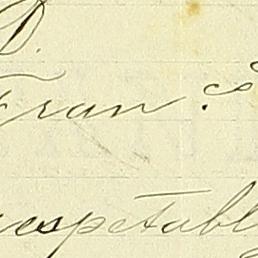 D.
Fran.co
respetable